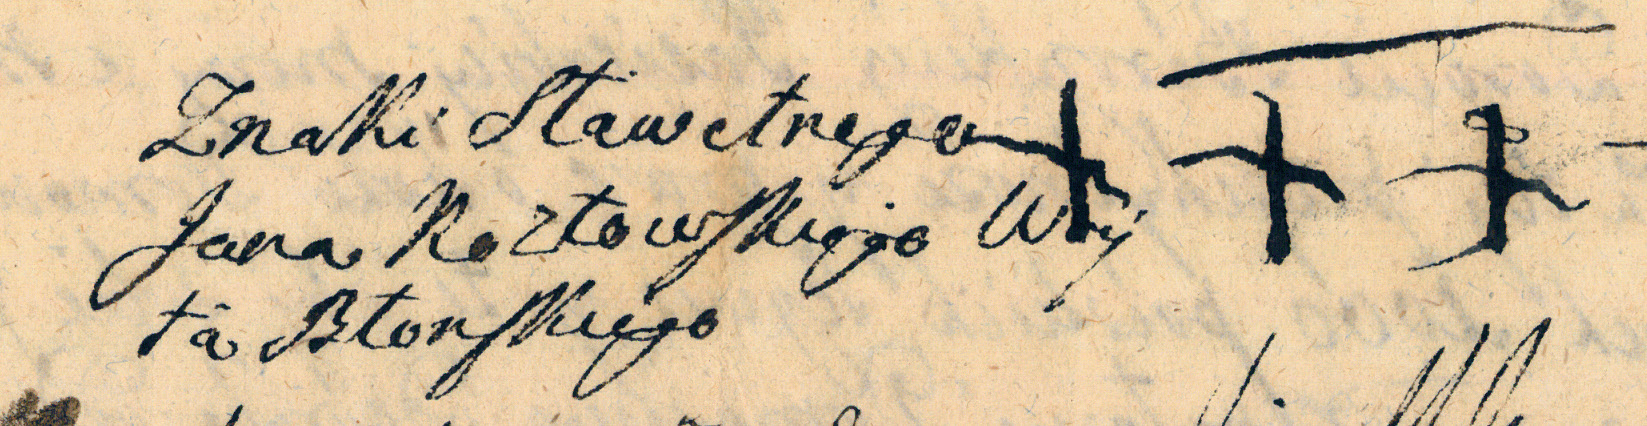 Znaki Sławetnego + + +
Jana Kozłowskiego Wóy
ta Błońskiego